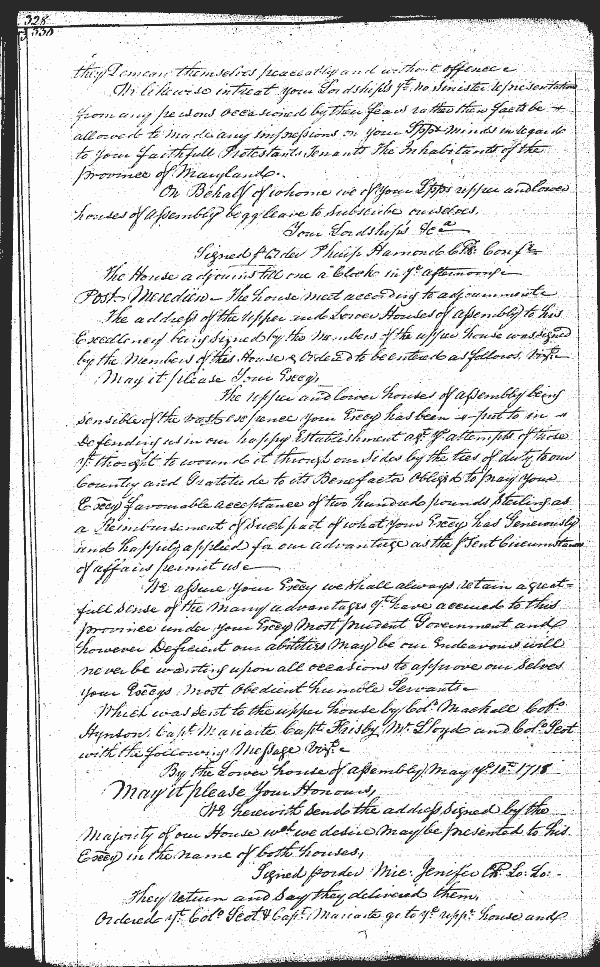 328
338
they Demean themselves peaceably and without offence
We likewise intreat your Lordships yt. no sinister representation
from any persons occasioned by their fears rather then facts be
allowed to made any impressions on your Lpps minds in regard
to your faithfull Protestants Tenants the Inhabitants of the
province of Maryland.
On Behalf of whome we of your Lpps upper and lower
houses of assembly begg leave to subscribe ourselves,
Your Lordships &ca
Signed p order Philip Hamond Clk. Confr.
The House adjourns till one a Clock in ye afternoon
Post Meredien The house mett according to adjournment
The address of the upper and Lower Houses of assembly to his
Excellency being signed by the Members of the upper house was signed
by the Members of this House & Ordered to be entred as follows, vizt.
May it please Your Excy,
The upper and lower houses of assembly being
sensible of the vast expence your Excy has been put to in
Defending us in our happy Establishment agt. ye attempts of those
yt. thought to wound it through our sides by the ties of duty to our
Country and Gratitude to its Benefactor Obliged to pray your
Excy favourable acceptance of two hundred pounds sterling as
a Reimbursement of such part of what your Excy has Generously
and happily applied for our advantage as the psent Circumstances
of affairs permit us
We assure your Excy we shall always retain a great=
full sense of the many advantages yt. have accrued to this
province under your Excys most prudent Government and
however Deficient our abilities may be our Endeavours will
never be wanting upon all occasions to approve our selves
your Excys most obedient humble Servants
Which was sent to the upper house by Colo. Mackall Colo.
Hynson, Capt. Mariarte Capt. Frisby Mr. Lloyd and Colo. Scot
with the following Message vizt.
By the Lower house of assembly May ye 10th. 1718
May it please Your Honours,
We herewith send the address signed by the
Majority of our House wch we desire may be presented to his
Excy in the name of both houses,
Signed p order Mic: Jenifer Clk. Lo: Ho:
They return and say they delivered them,
Ordered yt. Colo. Scot & Capt. Mariarte go to ye uppr. house and